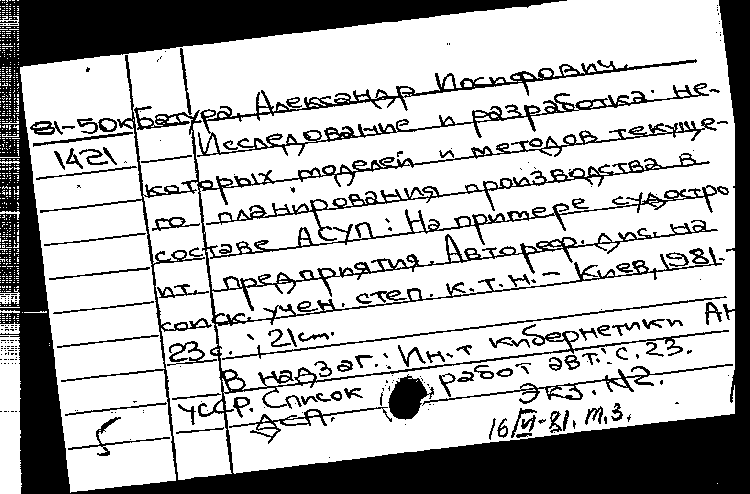 81-50к Батура, Александр Иосифович.
1421 Исследование и разработка не-
которых моделей и методов текуще-
го планирования производства в
составе АСУП: На примере судостро-
ит. предприятия. Автореф. дис. на
соиск. учен. степ. к.т.н. - Киев, 1981. -
23 с.; 21 см.
В надзаг.: Ин-т кибернетики АН
УССР. Список работ авт.: с. 23.
ДСП. Экз. №2.
16/VI-81. т.з.